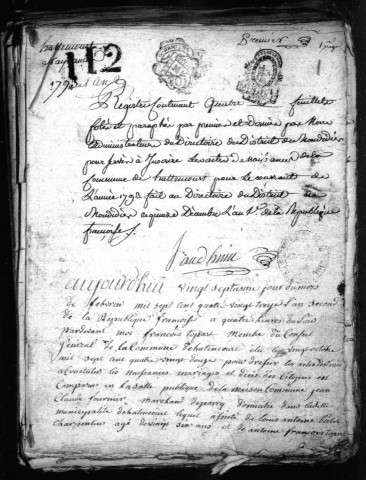 hattencourt
Naissances
112
Premier
1793
Registre Contenant Quatre feuillets
Cotés et paraphés par premier et dernier par Nous
administrateur du Directoire du District de Montdidier
pour servir à Inscrire les actes de Naissances de la
Commune de hattencourt pour le courant de
L'année 1793 fait au Directoire du District de
Montdidier ce quinze Décembre L'an 1er de la République
françoise
aujourdhui vingt septieme jour du mois
de fevrier mil sept cent quatre vingt treize l'an second
de la République françoise a quatre heures du soir
pardevant moi françois membre du Conseil
General de la Commune d'hatencourt élu le vingt octobre
mil sept cent quatre vingt douze pour dresser les actes destinés
a Constater les naissances mariages et décès des Citoyens est
Comparu en la salle publique de la maison Commune jean
Claude fournier marchand domicilié dans ladite
municipalité d'hatencourt lequel assisté de Louis antoine
Charpentier agé de vingt six ans et de antoine françois